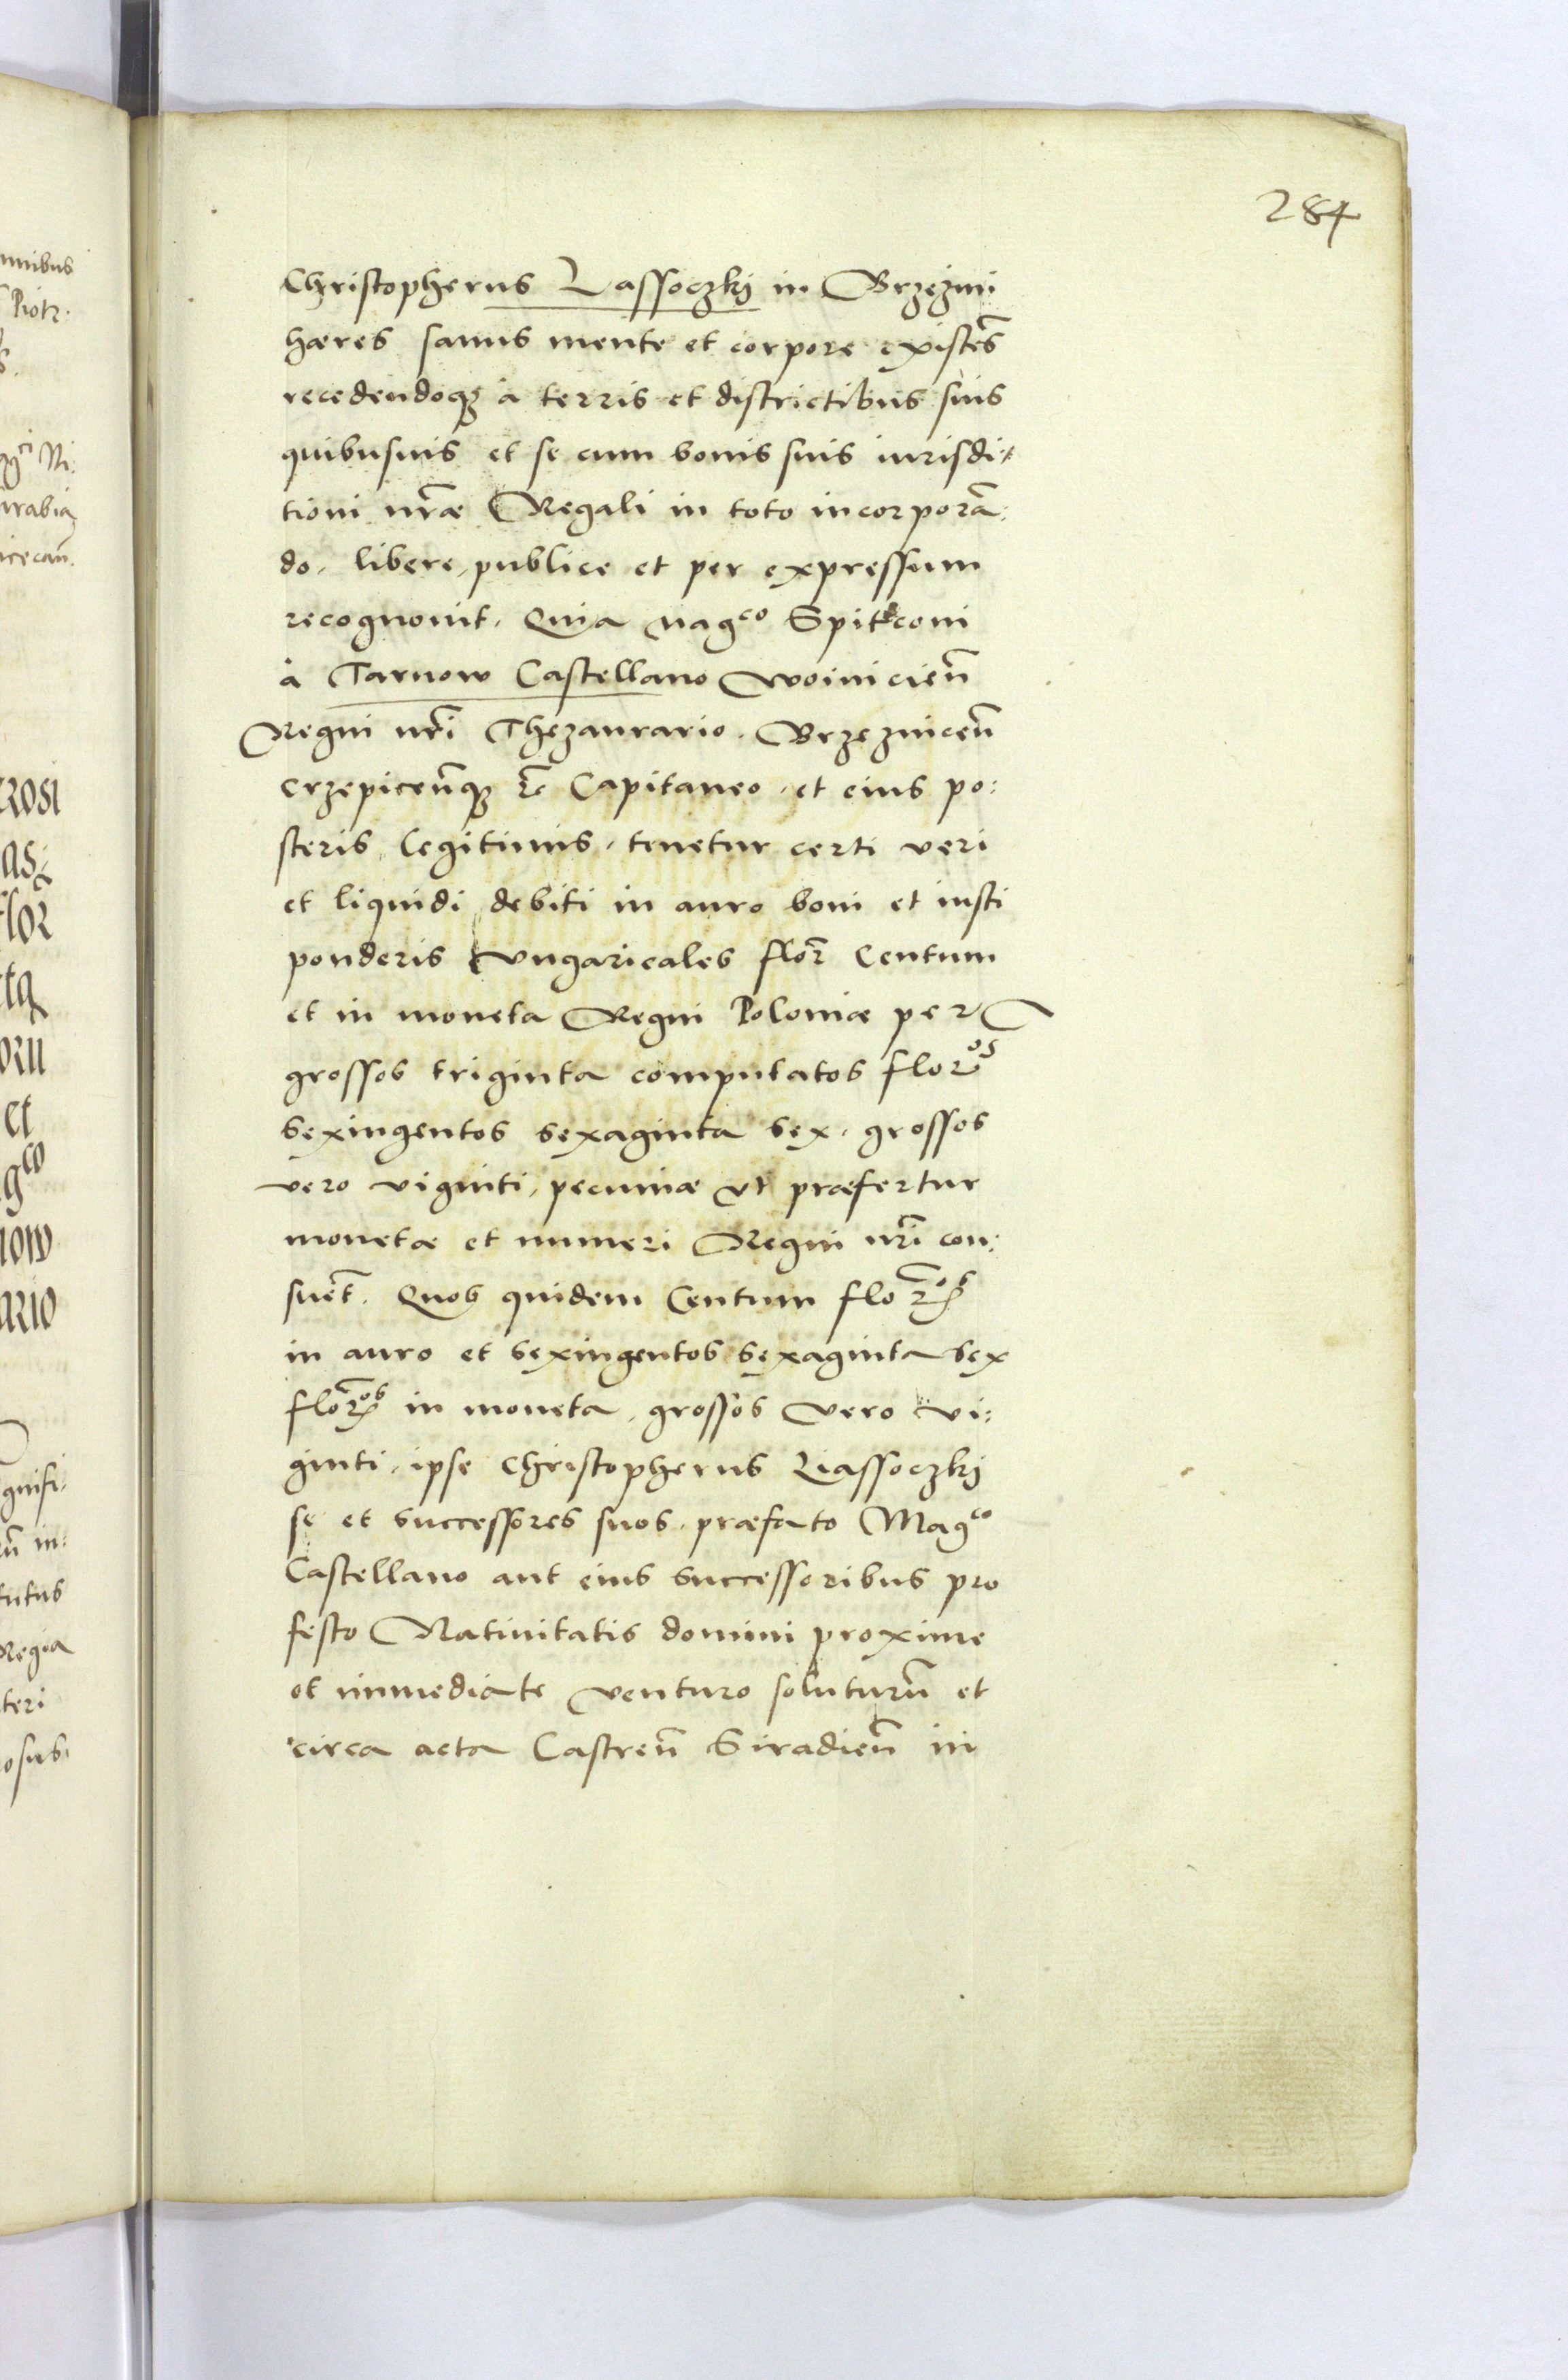 284
Christopherus Lassoczkj in Brzezini
hæres sanus mente et corpore existēs
recedendoqꝫ à terris et districtibus suis
quibusuis et se cum bonis suis iurisdi:
tioni nr̃æ Regali in toto incorporã:
do, libere, publice et per expressum
recognouit. Quia Magco Spitkoni
à Tarnow Castellano Woinicieñ
Regni nr̃i Thezaurario. Brzezniceñ
Crzepiceñqꝫ &c Capitaneo, et eius po:
steris legitimis, tenetur certi veri
et liquidi debiti in auro boni et iusti
ponderis vngaricales flor̃ Centum
et in moneta Regni Poloniæ per
grossos triginta computatos floros
sexingentos sexaginta sex, grossos
vero viginti, pecuniæ vt præfertur
monetæ et numeri Regni nr̃i con:
suet̃. Quos quidem Centum flor̃os
in auro et sexingentos sexaginta sex
flor̃os in moneta, grossos vero vi:
ginti, ipse Christopherus Liassoczkj
se et successores suos, præfato Magco
Castellano aut eius successoribus pro
festo Natiuitatis domini proxime
et immediate venturo soluturũ et
circa acta Castreñ Siradieñ in